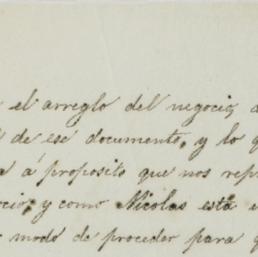 el arreglo del negocio,
de ese documento, y lo
á proposito que nos
y como Nicolas está
modo de proceder para